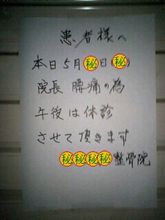 患者様へ
本日5月㊙日㊙
院長 腰痛の為
午後は休診
させて頂きます
㊙㊙㊙㊙整骨院